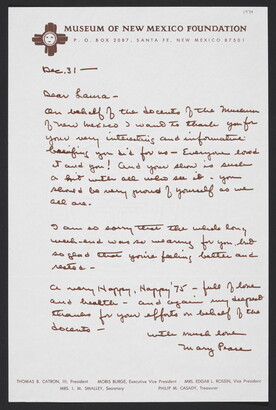 1974
MUSEUM OF NEW MEXICO FOUNDATION
P. O. BOX 2087, SANTA FE, NEW MEXICO 87501
Dec. 31 —
Dear Laura -
On behalf of the docents of the Museum
of New Mexico I want to thank you for
your very interesting and informative
briefing you did for us - Everyone loved
it and you! And your show is such
a hit with all who see it - you
should be very proud of yourself as we
all are.
I am so sorry that the whole long
weekend was so wearing for you, but
so glad that you're feeling better and
rested -
A very Happy, Happy '75 - full of love
and health - and again my deepest
thanks for your efforts on behalf of the
docents -
With much love
Mary Pease
THOMAS B. CATRON, III, President MORIS BURGE, Executive Vice President MRS. EDGAR L. ROSSIN, Vice President
MRS. J. M. SMALLEY, Secretary PHILIP M. CASADY, Treasurer